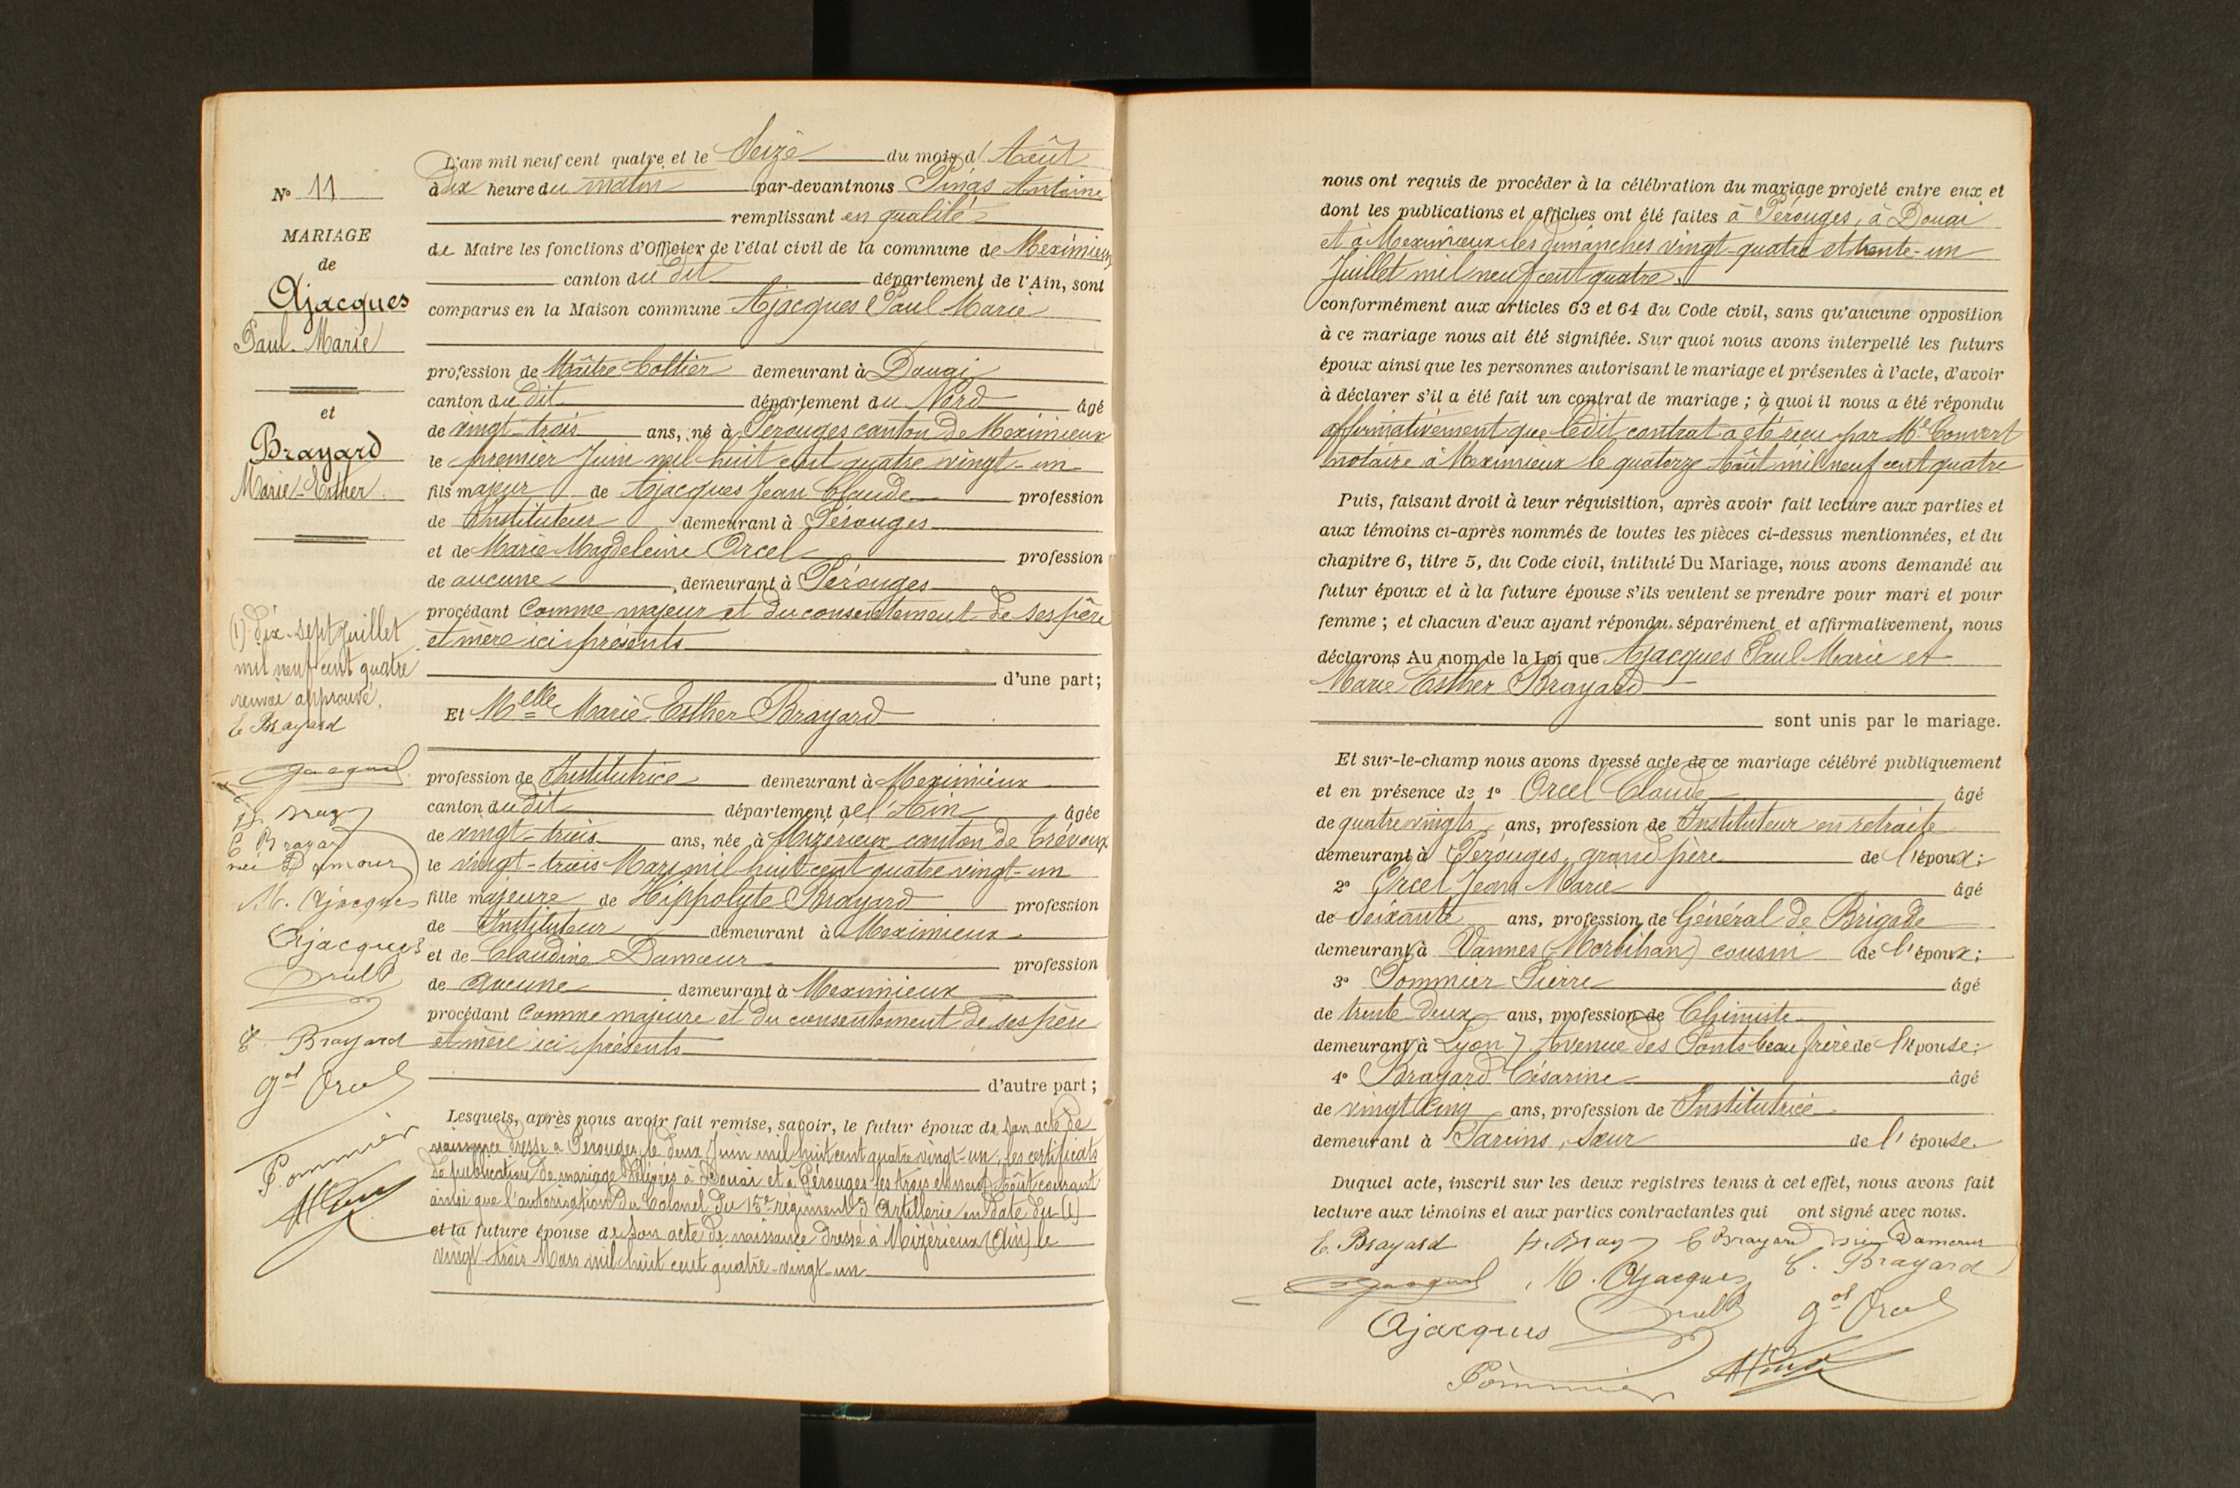 N° 11
MARIAGE
de
Ajacques
Paul-Marie
et
Brayard
Marie-Esther
(1) dix-sept juillet
mil neuf cent quatre
renvoi approuvé.
E. Brayard
C Brayard
née Damour
M. Ajacques
Ajacques
Orcel
C. Brayard
gal Orcel
Pommier
L'an mil neuf cent quatre et le Seize du mois d'Août
à dix heure du matin par-devant nous Pinas Antoine
remplissant en qualité
de Maire les fonctions d'Officier de l'état civil de la commune de Meximieux
canton du dit département de l'Ain, sont
comparus en la Maison commune Ajacques Paul Marie
profession de Maître Sellier demeurant à Douai
canton du dit département du Nord âgé
de vingt-trois ans, né à Pérouges canton de Meximieux
le premier Juin mil huit cent quatre vingt-un
fils majeur de Ajacques Jean Claude profession
de Instituteur demeurant à Pérouges
et de Marie Magdeleine Orcel profession
de aucune demeurant à Pérouges
procédant comme majeur et du consentement de ses père
et mère ici présents
d'une part;
Et Melle Marie Esther Brayard
profession de Institutrice demeurant à Meximieux
canton du dit département de l'Ain âgée
de vingt-trois ans, née à Mizérieux canton de Trévoux
le vingt-trois Mars mil huit cent quatre vingt-un
fille majeure de Hippolyte Brayard profession
de Instituteur demeurant à Meximieux
et de Claudine Damour profession
de aucune demeurant à Meximieux
procédant comme majeure et du consentement de ses père
et mère ici présents
d'autre part;
Lesquels, après nous avoir fait remise, savoir, le futur époux de son acte de
naissance dressé à Pérouges le deux Juin mil huit cent quatre vingt-un, les certificats
de publication de mariage délivrés à Douai et à Pérouges les trois et neuf Août courant
ainsi que l'autorisation du Colonel du 15e régiment d'Artillerie en date du (1)
et la future épouse de son acte de naissance dressé à Mizérieux (Ain) le
vingt-trois Mars mil huit cent quatre-vingt-un
nous ont requis de procéder à la célébration du mariage projeté entre eux et
dont les publications et affiches ont été faites à Pérouges, à Douai
et à Meximieux les dimanches vingt-quatre et trente-un
Juillet mil neuf cent quatre.
conformément aux articles 63 et 64 du Code civil, sans qu'aucune opposition
à ce mariage nous ait été signifiée. Sur quoi nous avons interpellé les futurs
époux ainsi que les personnes autorisant le mariage et présentes à l'acte, d'avoir
à déclarer s'il a été fait un contrat de mariage; à quoi il nous a été répondu
affirmativement que ledit contrat a été reçu par Me Convert
notaire à Meximieux le quatorze Août mil neuf cent quatre
Puis, faisant droit à leur réquisition, après avoir fait lecture aux parties et
aux témoins ci-après nommés de toutes les pièces ci-dessus mentionnées, et du
chapitre 6, titre 5, du Code civil, intitulé Du Mariage, nous avons demandé au
futur époux et à la future épouse s'ils veulent se prendre pour mari et pour
femme; et chacun d'eux ayant répondu séparément et affirmativement, nous
déclarons Au nom de la Loi que Ajacques Paul Marie et
Marie Esther Brayard
sont unis par le mariage.
Et sur-le-champ nous avons dressé acte de ce mariage célébré publiquement
et en présence de 1° Orcel Claude âgé
de quatre vingts ans, profession de Instituteur en retraite
demeurant à Pérouges, grand père de l'époux;
2° Orcel Jean Marie âgé
de soixante ans, profession de Général de Brigade
demeurant à Vannes (Morbihan) cousin de l'époux;
3° Pommier Pierre âgé
de trente deux ans, profession de Chimiste
demeurant à Lyon 7 Avenue des Ponts beau frère de l'épouse;
4° Brayard Césarine âgé
de vingt cinq ans, profession de Institutrice
demeurant à Parcins, sœur de l'épouse.
Duquel acte, inscrit sur les deux registres tenus à cet effet, nous avons fait
lecture aux témoins et aux parties contractantes qui ont signé avec nous.
E. Brayard H. Bray C Brayard née Damour
M. Ajacques C. Brayard
Ajacques Orcel gal Orcel
Pommier